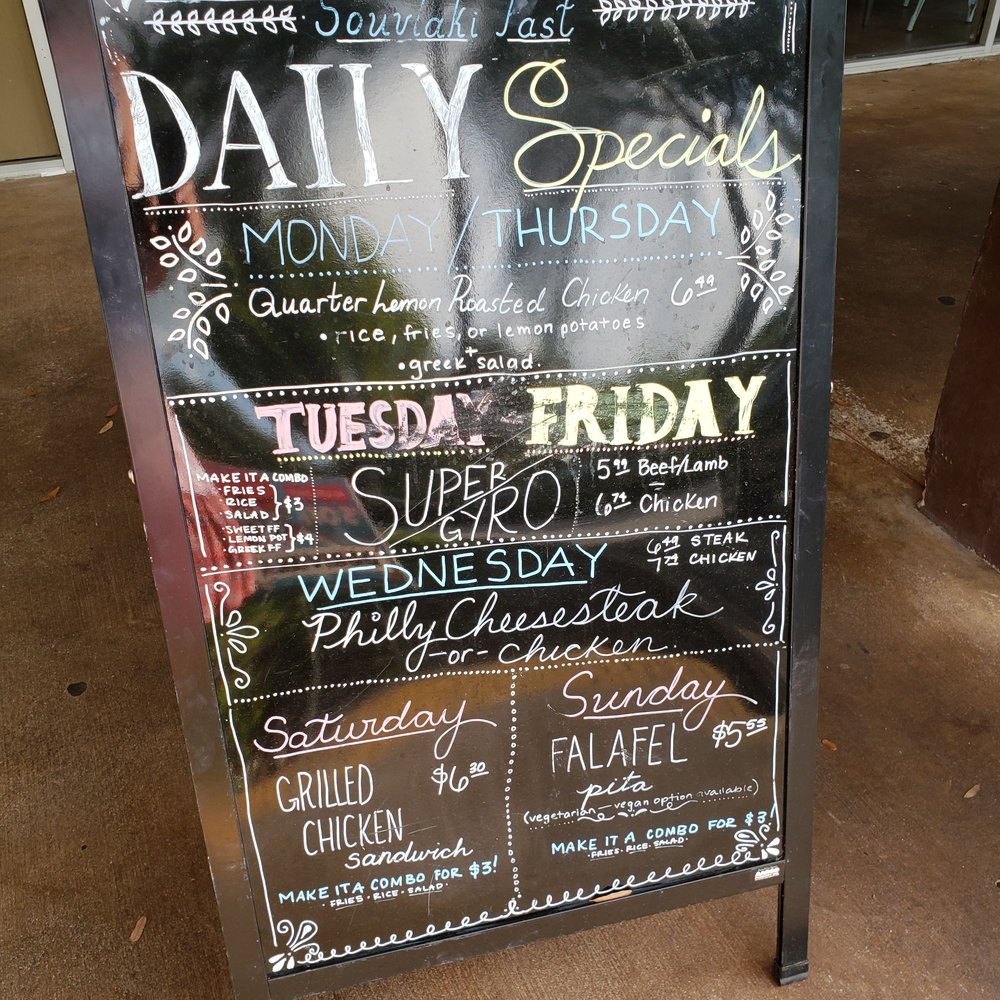 Souvlaki Fast
DAILY Specials
MONDAY / THURSDAY
Quarter Lemon Roasted Chicken 6.49
• rice, fries, or lemon potatoes
+
• greek salad.
TUESDAY / FRIDAY
MAKE IT A COMBO
• FRIES
• RICE
• SALAD } $3
• SWEET FF
• LEMON POT
• GREEK FF } $4
SUPER GYRO
5.99 Beef/Lamb
6.74 Chicken
WEDNESDAY
6.49 STEAK
7.24 CHICKEN
Philly Cheesesteak
-or- chicken
Saturday
GRILLED $6.30
CHICKEN
sandwich
MAKE IT A COMBO FOR $3!
• FRIES • RICE • SALAD •
Sunday
FALAFEL $5.55
pita
(vegetarian - vegan option available)
MAKE IT A COMBO FOR $3!
• FRIES • RICE • SALAD •